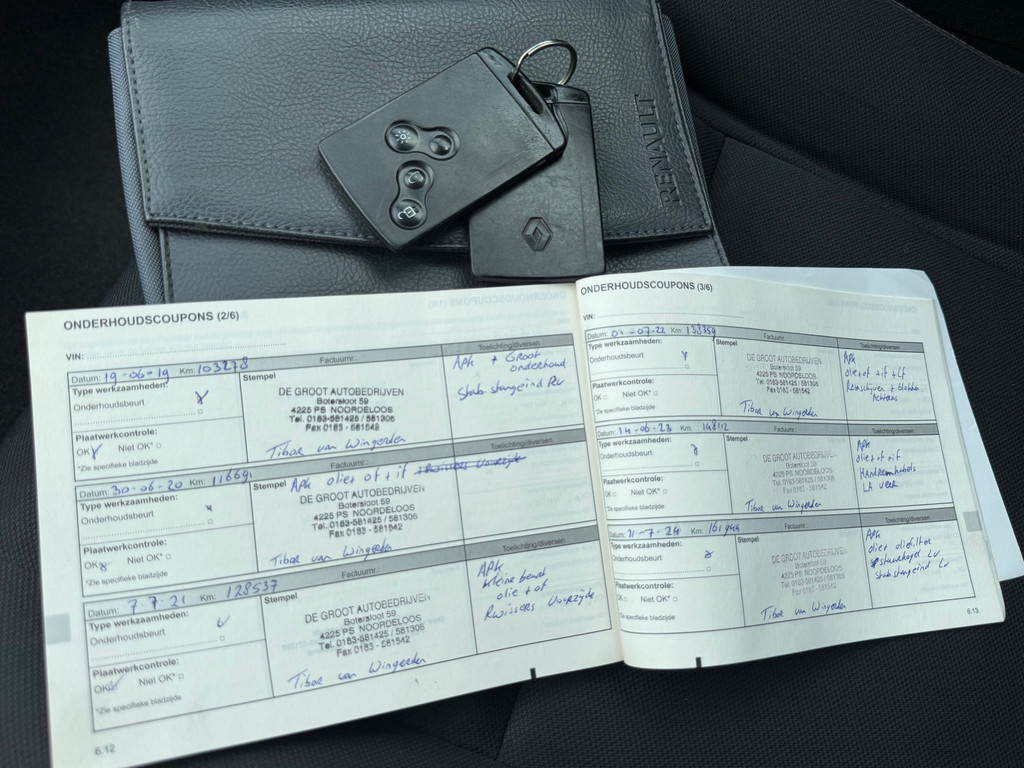 RENAULT
ONDERHOUDSCOUPONS (2/6)
VIN:
Datum: 19-06-19 Km: 103278
Factuurnr.:
Toelichting/diversen
Type werkzaamheden:
Onderhoudsbeurt
Plaatwerkcontrole:
OK Niet OK*
*Zie specifieke bladzijde
Stempel
DE GROOT AUTOBEDRIJVEN
Botersloot 59
4225 PS NOORDELOOS
Tel. 0183-581425 / 581306
Fax 0183 - 581542
Tibor van Wingerden
APK + Groot
onderhoud
Stabstangeind RV
Datum: 30-06-20 Km: 116691
Type werkzaamheden:
Onderhoudsbeurt
Plaatwerkcontrole:
OK Niet OK*
*Zie specifieke bladzijde
Stempel
APK olie+ of + if
DE GROOT AUTOBEDRIJVEN
Botersloot 59
4225 PS NOORDELOOS
Tel. 0183-581425 / 581306
Fax 0183 - 581542
Tibor van Wingerden
Toelichting/diversen
Datum: 7-7-21 Km: 128537
Factuurnr.:
Toelichting/diversen
Type werkzaamheden:
Onderhoudsbeurt
Plaatwerkcontrole:
OK Niet OK*
*Zie specifieke bladzijde
Stempel
DE GROOT AUTOBEDRIJVEN
Botersloot 59
4225 PS NOORDELOOS
Tel. 0183-581425 / 581306
Fax 0183 - 581542
Tibor van Wingerden
APK
kleine beurt
olie + of
Rwissers Voorzijde
6.12
ONDERHOUDSCOUPONS (3/6)
VIN:
Datum: 04-07-22 Km: 138359
Factuurnr.:
Toelichting/diversen
Type werkzaamheden:
Onderhoudsbeurt
Plaatwerkcontrole:
OK Niet OK*
*Zie specifieke bladzijde
Stempel
DE GROOT AUTOBEDRIJVEN
Botersloot 59
4225 PS NOORDELOOS
Tel. 0183-581425 / 581306
Fax 0183 - 581542
Tibor van Wingerden
APK
olie+ of + if + lf
Remschijven + blokken
Achteras
Datum: 14-06-23 Km: 148112
Factuurnr.:
Toelichting/diversen
Type werkzaamheden:
Onderhoudsbeurt
Plaatwerkcontrole:
OK Niet OK*
*Zie specifieke bladzijde
Stempel
DE GROOT AUTOBEDRIJVEN
Botersloot 59
4225 PS NOORDELOOS
Tel. 0183-581425 / 581306
Fax 0183 - 581542
Tibor van Wingerden
APK
olie+ of + if
Handremkabels
LA veer
Datum: 11-7-24 Km: 161944
Factuurnr.:
Toelichting/diversen
Type werkzaamheden:
Onderhoudsbeurt
Plaatwerkcontrole:
OK Niet OK*
*Zie specifieke bladzijde
Stempel
DE GROOT AUTOBEDRIJVEN
Botersloot 59
4225 PS NOORDELOOS
Tel. 0183-581425 / 581306
Fax 0183 - 581542
Tibor van Wingerden
APK
olie+ oliefilter
Stabstangeind LV
6.13